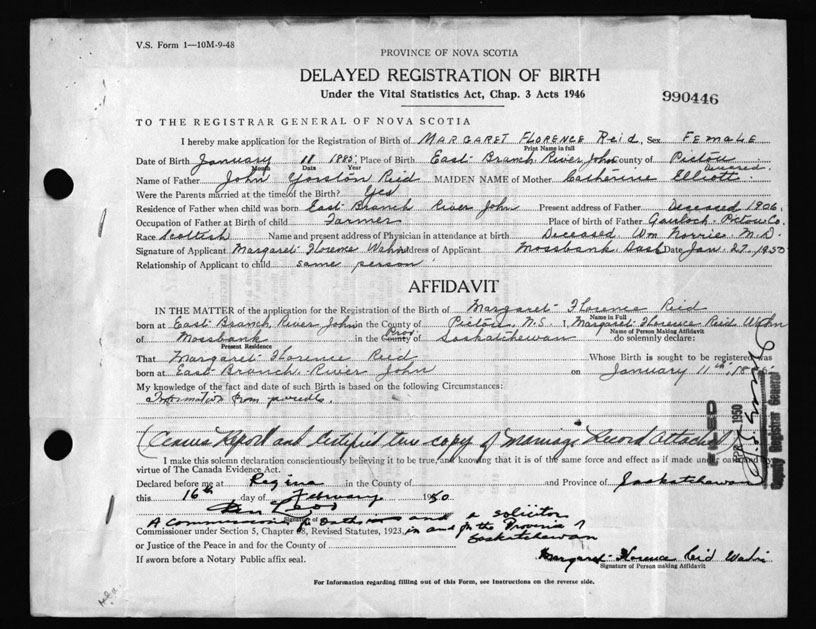 V.S. Form 1—10M-9-48
PROVINCE OF NOVA SCOTIA
DELAYED REGISTRATION OF BIRTH
Under the Vital Statistics Act, Chap. 3 Acts 1946
990446
TO THE REGISTRAR GENERAL OF NOVA SCOTIA
I hereby make application for the Registration of Birth of MARGARET FLORENCE Reid, Sex FEMALE
Print Name in full
Date of Birth January 11 1885, Place of Birth East Branch River John County of Pictou
Month Date Year
deceased
Name of Father John Yorston Reid MAIDEN NAME of Mother Catherine Elliott
Were the Parents married at the time of the Birth? Yes
Residence of Father when child was born East Branch River John Present address of Father Deceased 1906.
Occupation of Father at Birth of child Farmer Place of birth of Father Gairloch Pictou Co.
Race Scottish Name and present address of Physician in attendance at birth Deceased, Wm Norrie M.D.
Signature of Applicant Margaret Florence Wahn Address of Applicant Mossbank, Sask Date Jan. 27, 1950
Relationship of Applicant to child same person
AFFIDAVIT
IN THE MATTER of the application for the Registration of the Birth of Margaret Florence Reid
Name in Full
born at East Branch River John in the County of Pictou, N.S. I, Margaret Florence Reid Wahn
Name of Person Making Affidavit
of Mossbank in the County of Prov. Saskatchewan do solemnly declare:
Present Residence
That Margaret Florence Reid Whose Birth is sought to be registered was
born at East Branch River John on January 11th,
My knowledge of the fact and date of such Birth is based on the following Circumstances:
Information from parents.
(Census Report and Certified true copy of Marriage Record Attached)
I make this solemn declaration conscientiously believing it to be true, and knowing that it is of the same force and effect as if made under oath and by
virtue of The Canada Evidence Act.
Declared before me at Regina in the County of and Province of Saskatchewan
this 16th day of February 1950
Signature of
A Commissioner for Oaths and a solicitor
Commissioner under Section 5, Chapter 68, Revised Statutes, 1923, in and for the Province of
Saskatchewan
or Justice of the Peace in and for the County of
Margaret Florence Reid Wahn
If sworn before a Notary Public affix seal.
Signature of Person making Affidavit
For Information regarding filling out of this Form, see Instructions on the reverse side.
1950
Deputy Registrar General